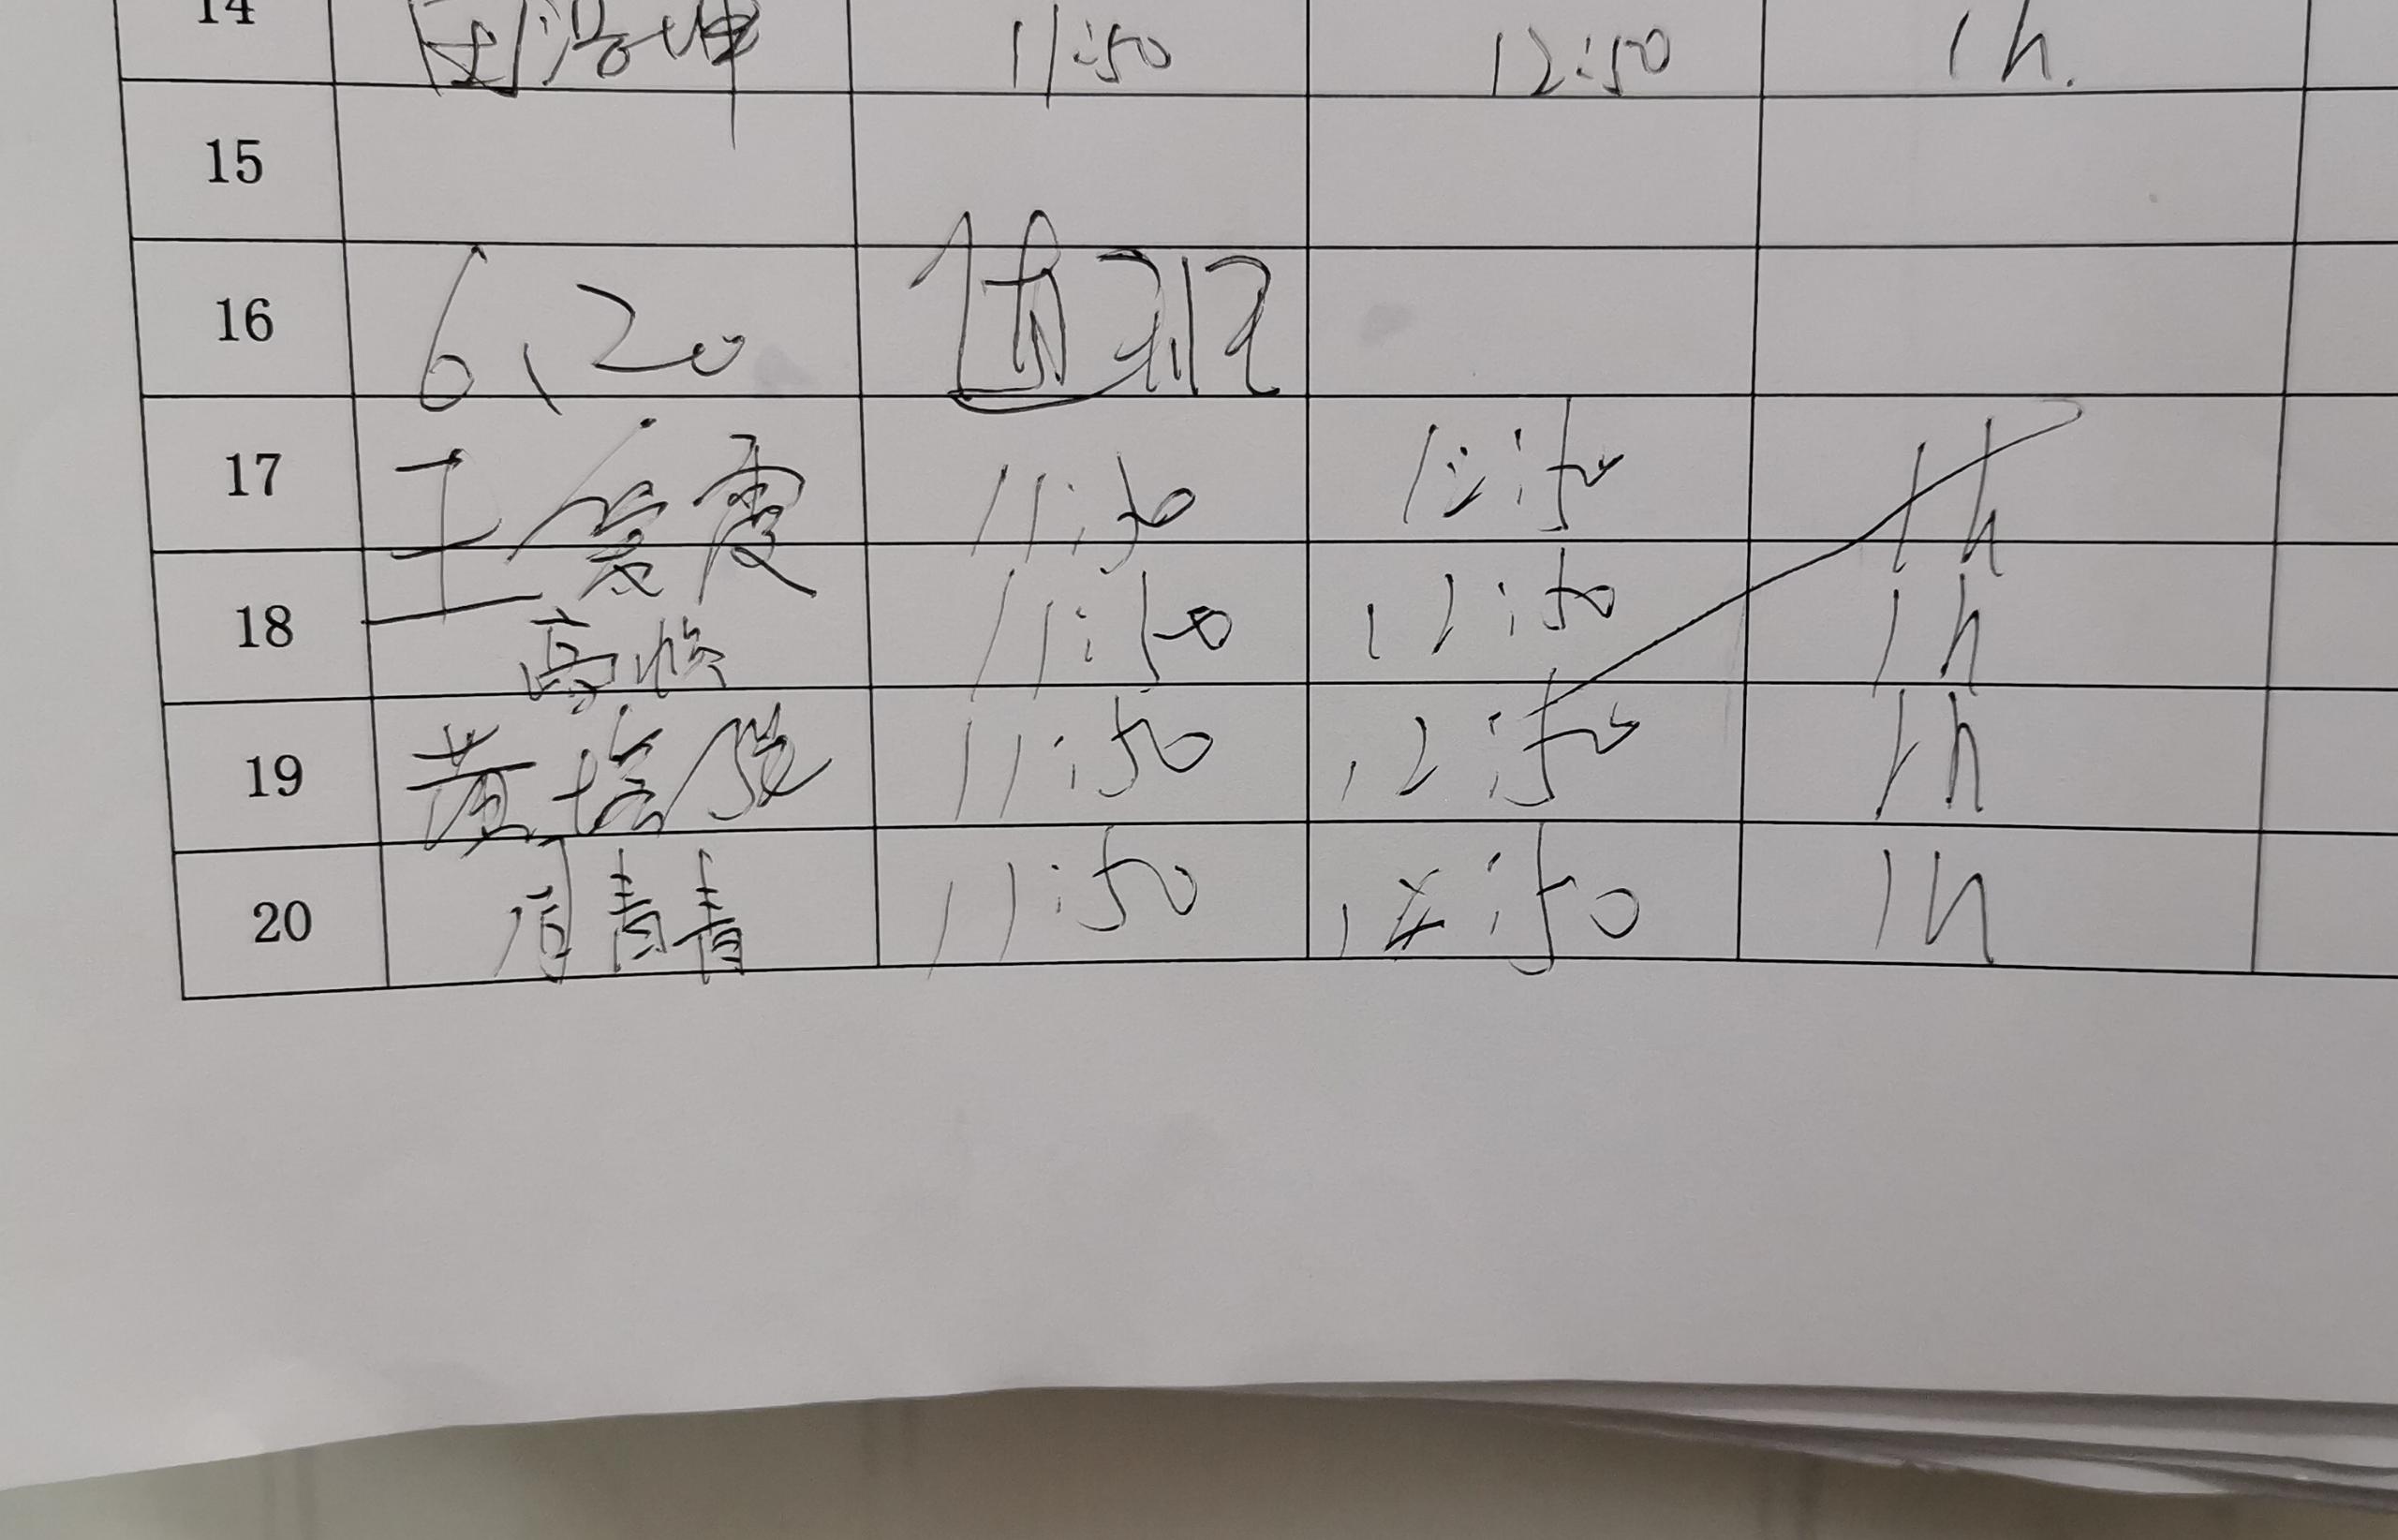 14 周浩坤 11:50 12:50 1h.
15
16 6、20 值班
17 王 霞 11:50 12:50 1h
18 高 11:50 12:50 1h
19 黄培俊 11:50 12:50 1h
20 周青青 11:50 12:50 1h